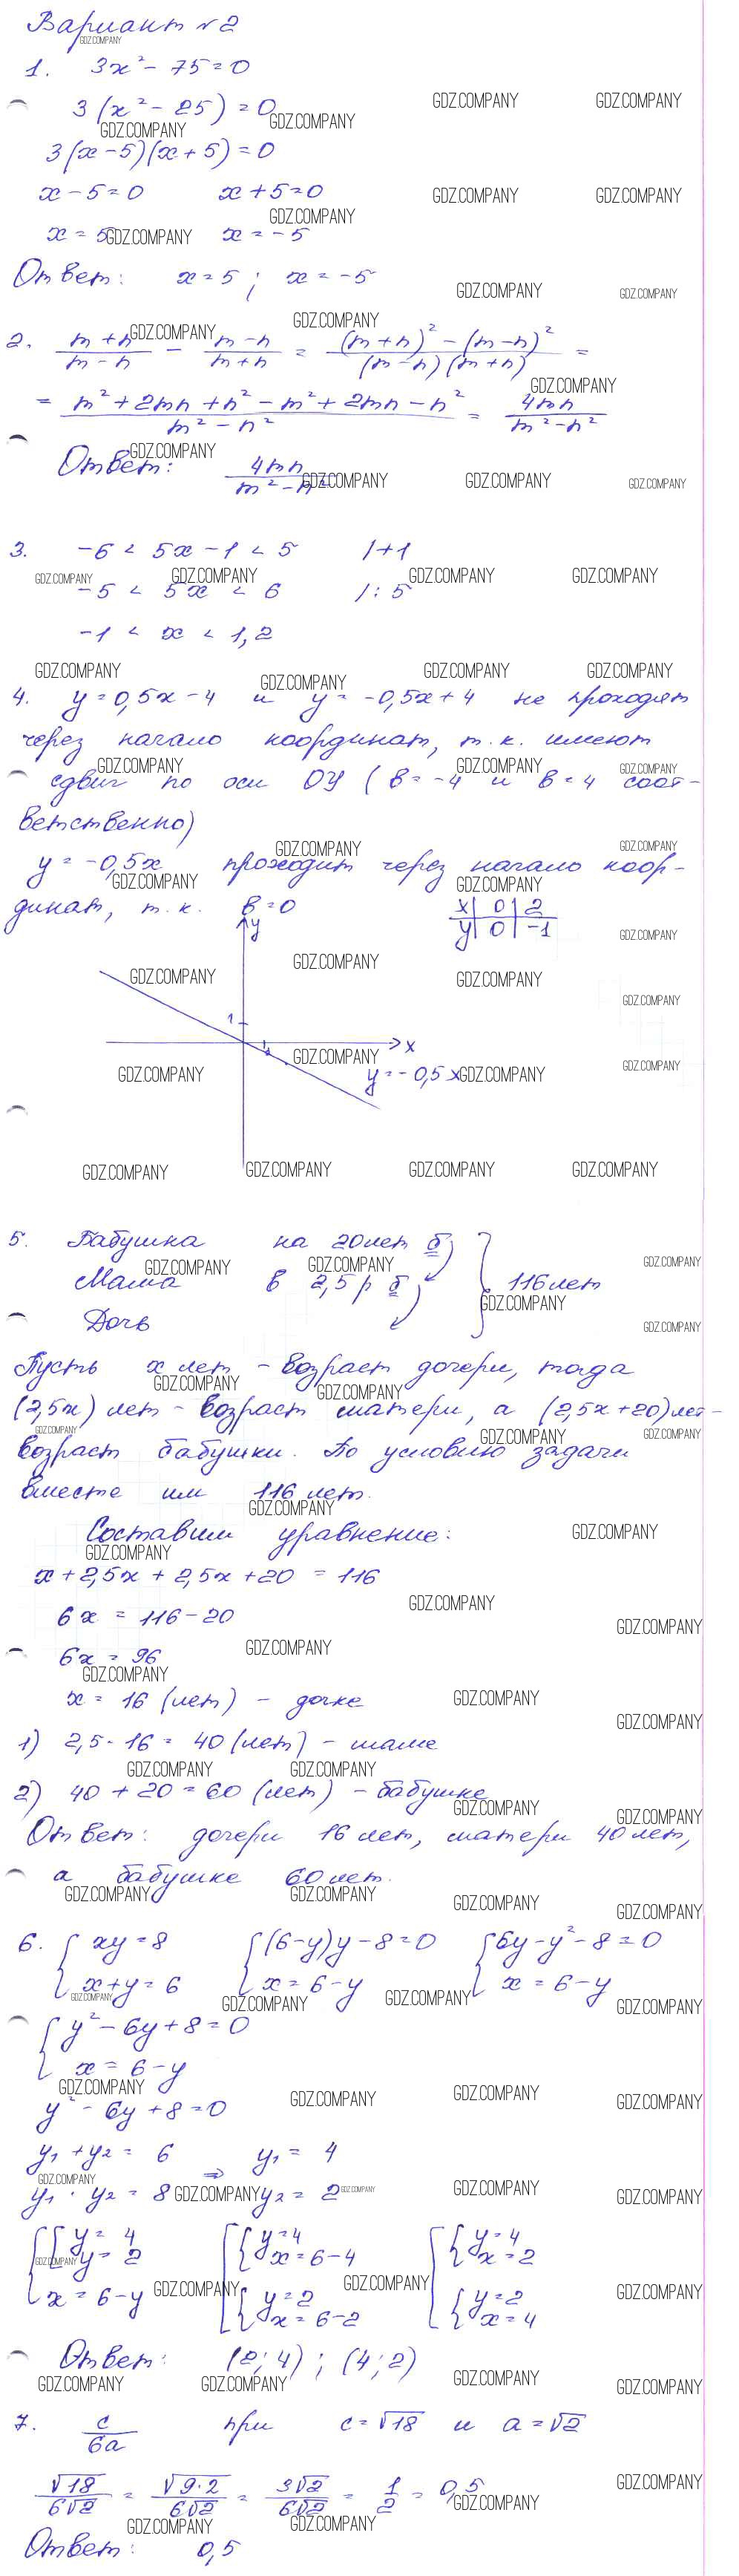 Вариант №2
1. 3x² - 75 = 0
3(x² - 25) = 0
3(x - 5)(x + 5) = 0
x - 5 = 0 x + 5 = 0
x = 5 x = -5
Ответ: x = 5 ; x = -5
2. (m + n)/(m - n) - (m - n)/(m + n) = ((m + n)² - (m - n)²)/((m - n)(m + n)) =
= (m² + 2mn + n² - m² + 2mn - n²)/(m² - n²) = 4mn/(m² - n²)
Ответ: 4mn/(m² - n²)
3. -6 < 5x - 1 < 5 /+1
-5 < 5x < 6 /: 5
-1 < x < 1,2
4. y = 0,5x - 4 и y = -0,5x + 4 не проходят
через начало координат, т.к. имеют
сдвиг по оси ОУ (в = -4 и в = 4 соот-
ветственно)
y = -0,5x проходит через начало коор-
динат, т.к. в = 0
x | 0 | 2
y | 0 | -1
y
1
1
x
y = -0,5x
5. Бабушка на 20 лет б
Мама в 2,5 р б 116 лет
Дочь
Пусть x лет - возраст дочери, тогда
(2,5x) лет - возраст матери, а (2,5x+20) лет -
возраст бабушки. По условию задачи
вместе им 116 лет.
Составим уравнение:
x + 2,5x + 2,5x + 20 = 116
6x = 116 - 20
6x = 96
x = 16 (лет) - дочке
1) 2,5 · 16 = 40 (лет) - маме
2) 40 + 20 = 60 (лет) - бабушке
Ответ: дочери 16 лет, матери 40 лет,
а бабушке 60 лет.
6. { xy = 8 { (6-y)y - 8 = 0 { 6y - y² - 8 = 0
{ x + y = 6 { x = 6 - y { x = 6 - y
{ y² - 6y + 8 = 0
{ x = 6 - y
y² - 6y + 8 = 0
y₁ + y₂ = 6 ⇒ y₁ = 4
y₁ · y₂ = 8 y₂ = 2
{ [ y = 4 [ { y = 4 [ { y = 4
[ y = 2 { x = 6 - 4 { x = 2
x = 6 - y { y = 2 { y = 2
{ x = 6 - 2 { x = 4
Ответ: (2; 4) ; (4; 2)
7. c/6a при c = √18 и a = √2
√18/6√2 = √9·2/6√2 = 3√2/6√2 = 1/2 = 0,5
Ответ: 0,5
GDZ.COMPANY